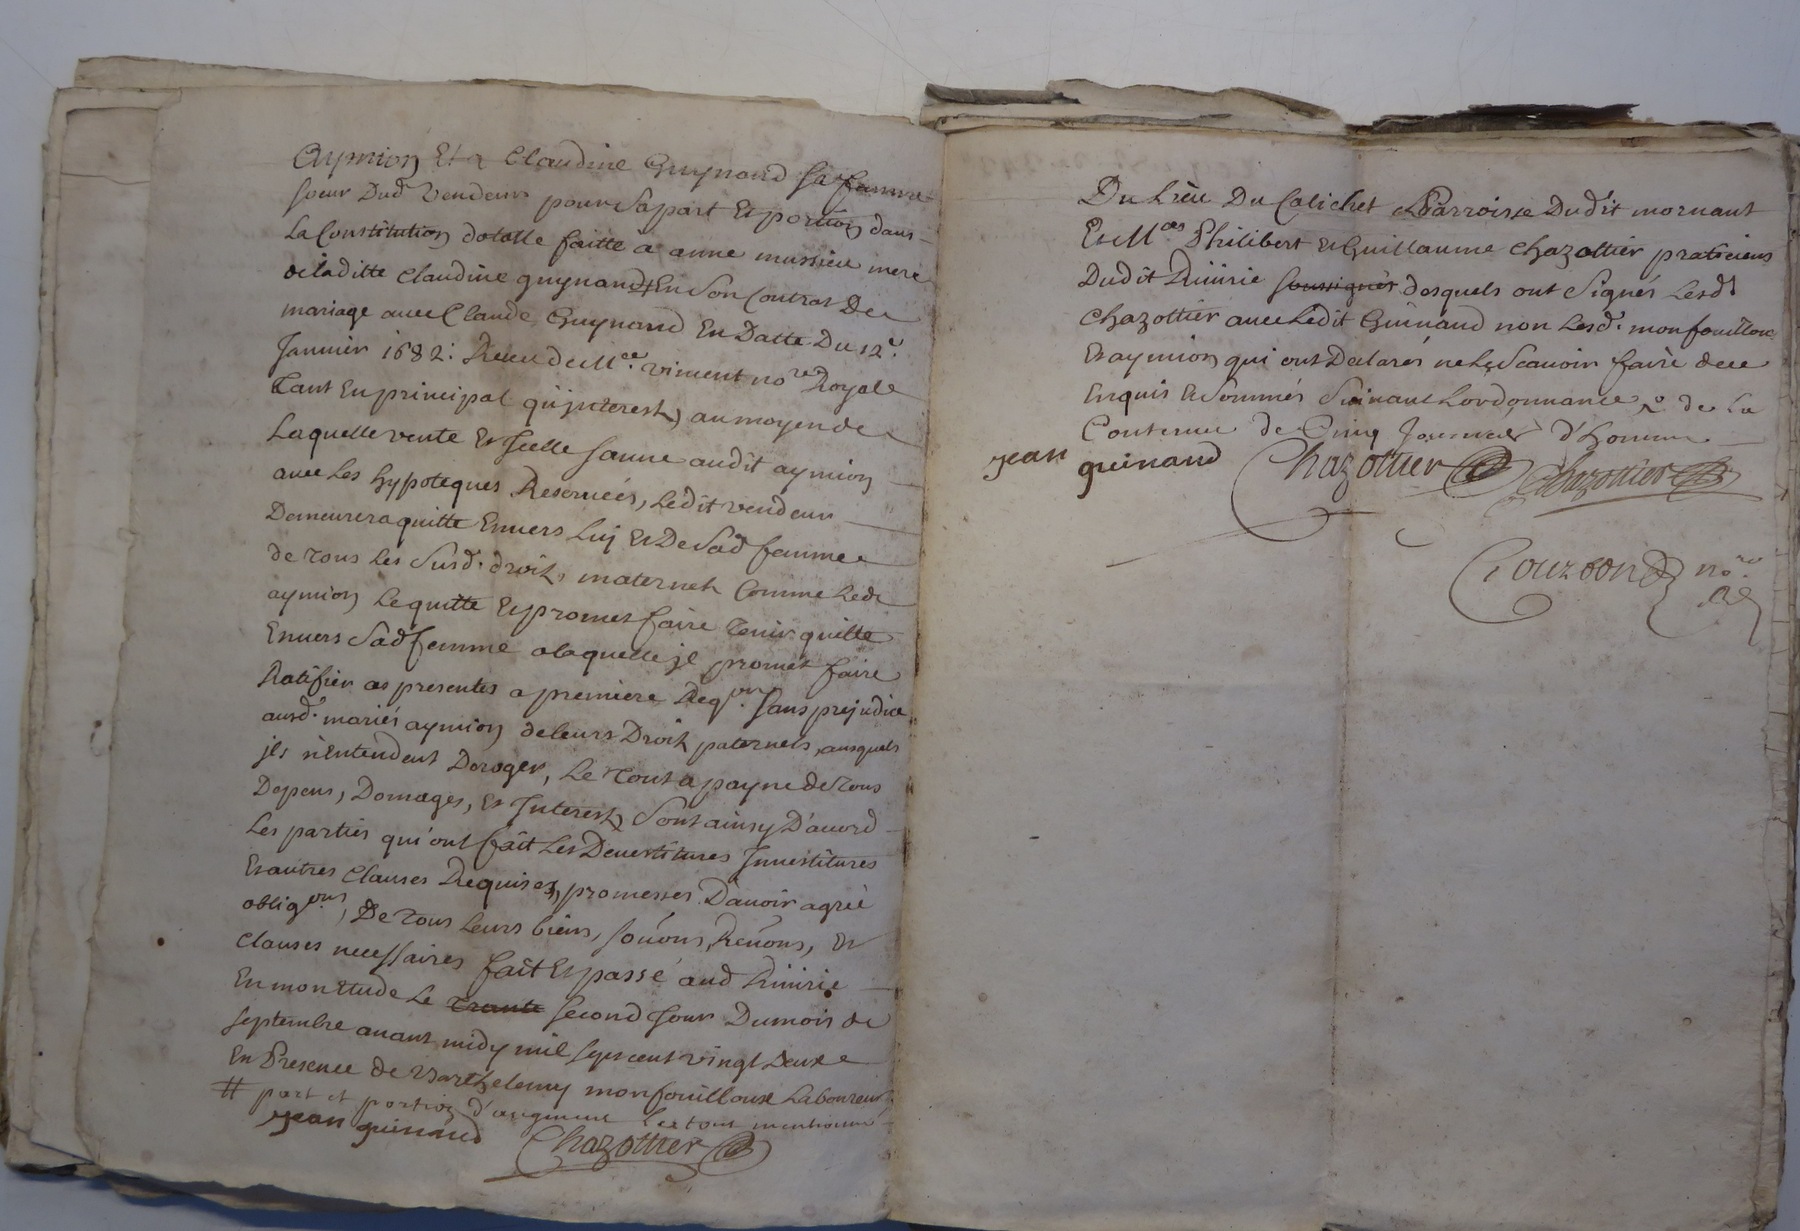 Aymion Et a Claudine Guynand sa femme
soeur Dud Vendeur pour sa part Et portion dans
La Constitution dotalle faitte a anne mussieu mere
de laditte Claudine guynand # En Son Contrat De
mariage avec Claude Guynand En Datte Du 12e.
Janvier 1682: Receu de Me. viment nore Royale
Tant En principal qu'jnterests, au moyen de
Laquelle vente Et Jcelle sauve audit aymion
avec Les hypoteques Reservées, Ledit vendeur
Demeurera quitte Envers Luy Et De Sad femme
de tous les Susd. droits maternels Comme Led
aymion Le quitte Et promet faire tenir quitte
Envers Sad femme a laquelle jl promet faire
Ratifier ces presentes a premiere Reqon. sans prejudice
ausd. mariés aymion de leurs Droits paternels, ausquels
jls n'Entendent Deroger, Le tout a payne de tous
Depens, Domages, Et Interests Sont ainsy D'acord
Les parties qui ont fait Les Devestitures Investitures
Et autres Clauses Requises, promesses D'avoir agréé
obligons, De tous Leurs biens, soûons, Renons, Et
Clauses necessaires fait Et passé aud Riuirie
En mon Etude Le trante second Jour Du mois de
septembre avant midy mil sept cent vingt Deux
En Presence de Barthelemy monfouilloux Laboureur
# part et portion d'augment Le tout mentionné
jean guinand Chazottier
Du Lieu Du Calichet Parroisse Dudit mornant
Et Mes Philibert Et Guillaume Chazottier praticiens
Dudit Riuirie soussignés desquels ont Signés Lesd
Chazottier avec Ledit Guinand non Lesd. monfouilloux
Et aymion qui ont Declarés ne Le Scavoir faire de ce
Enquis Et Sommés Suivant Lordonnance, & de La
Contenue de Cinq Journées d'homme
jean guinand Chazottier Chazottier
Gouzdon nore
R